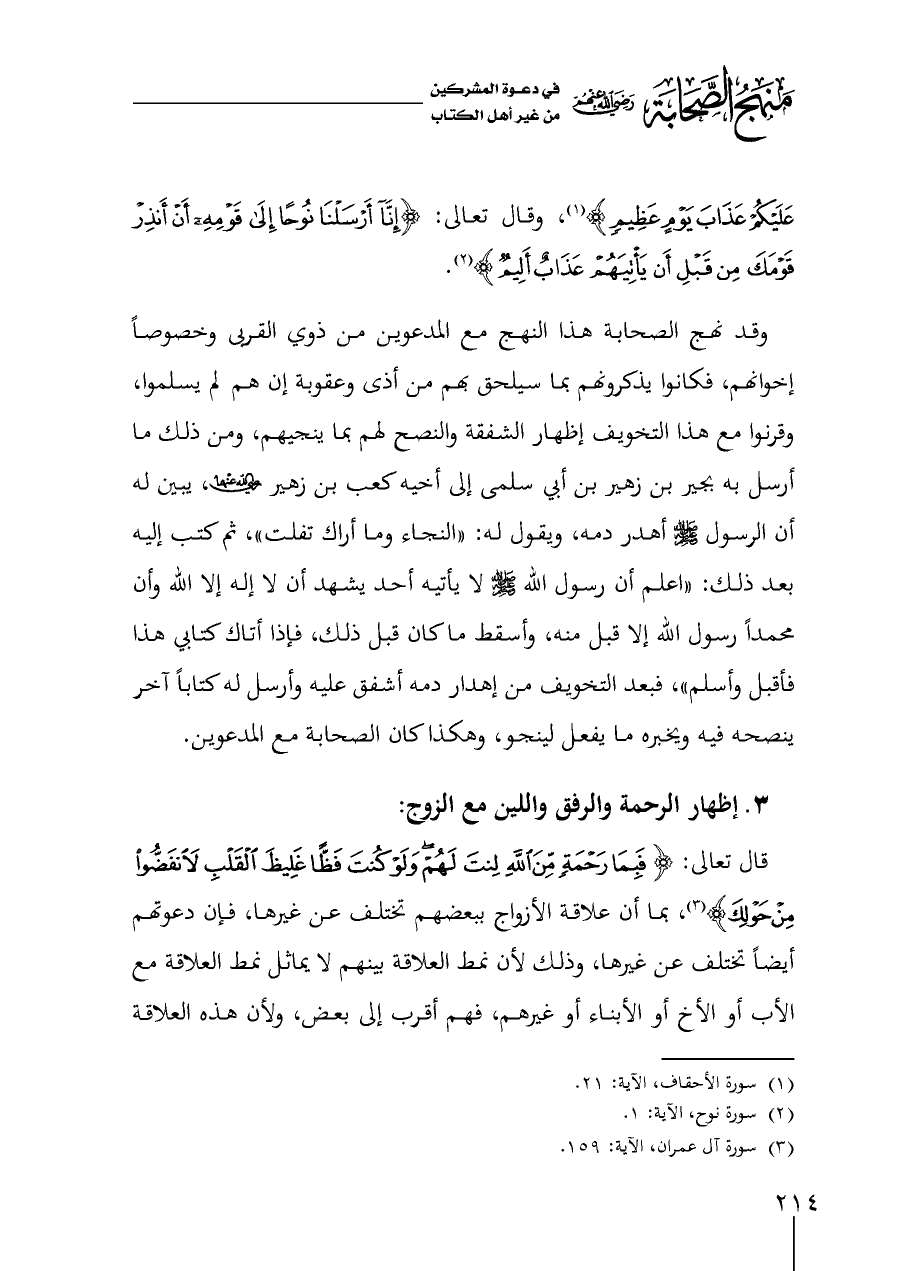 منهج الصحابة رضي الله عنهم في دعوة المشركين
من غير أهل الكتاب
عَلَيْكُمْ عَذَابَ يَوْمٍ عَظِيمٍ﴾(١)، وقال تعالى: ﴿إِنَّآ أَرْسَلْنَا نُوحًا إِلَىٰ قَوْمِهِۦٓ أَنْ أَنذِرْ
قَوْمَكَ مِن قَبْلِ أَن يَأْتِيَهُمْ عَذَابٌ أَلِيمٌ﴾(٢).
وقد نهج الصحابة هذا النهج مع المدعوين من ذوي القربى وخصوصاً
إخوانهم، فكانوا يذكرونهم بما سيلحق بهم من أذى وعقوبة إن هم لم يسلموا،
وقرنوا مع هذا التخويف إظهار الشفقة والنصح لهم بما ينجيهم، ومن ذلك ما
أرسل به بجير بن زهير بن أبي سلمى إلى أخيه كعب بن زهير رضي الله عنهما، يبين له
أن الرسول ﷺ أهدر دمه، ويقول له: «النجاء وما أراك تفلت»، ثم كتب إليه
بعد ذلك: «اعلم أن رسول الله ﷺ لا يأتيه أحد يشهد أن لا إله إلا الله وأن
محمداً رسول الله إلا قبل منه، وأسقط ما كان قبل ذلك، فإذا أتاك كتابي هذا
فأقبل وأسلم»، فبعد التخويف من إهدار دمه أشفق عليه وأرسل له كتاباً آخر
ينصحه فيه ويخبره ما يفعل لينجو، وهكذا كان الصحابة مع المدعوين.
٣. إظهار الرحمة والرفق واللين مع الزوج:
قال تعالى: ﴿فَبِمَا رَحْمَةٍ مِّنَ ٱللَّهِ لِنتَ لَهُمْ ۖ وَلَوْ كُنتَ فَظًّا غَلِيظَ ٱلْقَلْبِ لَٱنفَضُّوا۟
مِنْ حَوْلِكَ﴾(٣)، بما أن علاقة الأزواج ببعضهم تختلف عن غيرها، فإن دعوتهم
أيضاً تختلف عن غيرها، وذلك لأن نمط العلاقة بينهم لا يماثل نمط العلاقة مع
الأب أو الأخ أو الأبناء أو غيرهم، فهم أقرب إلى بعض، ولأن هذه العلاقة
(١) سورة الأحقاف، الآية: ٢١.
(٢) سورة نوح، الآية: ١.
(٣) سورة آل عمران، الآية: ١٥٩.
٢١٤